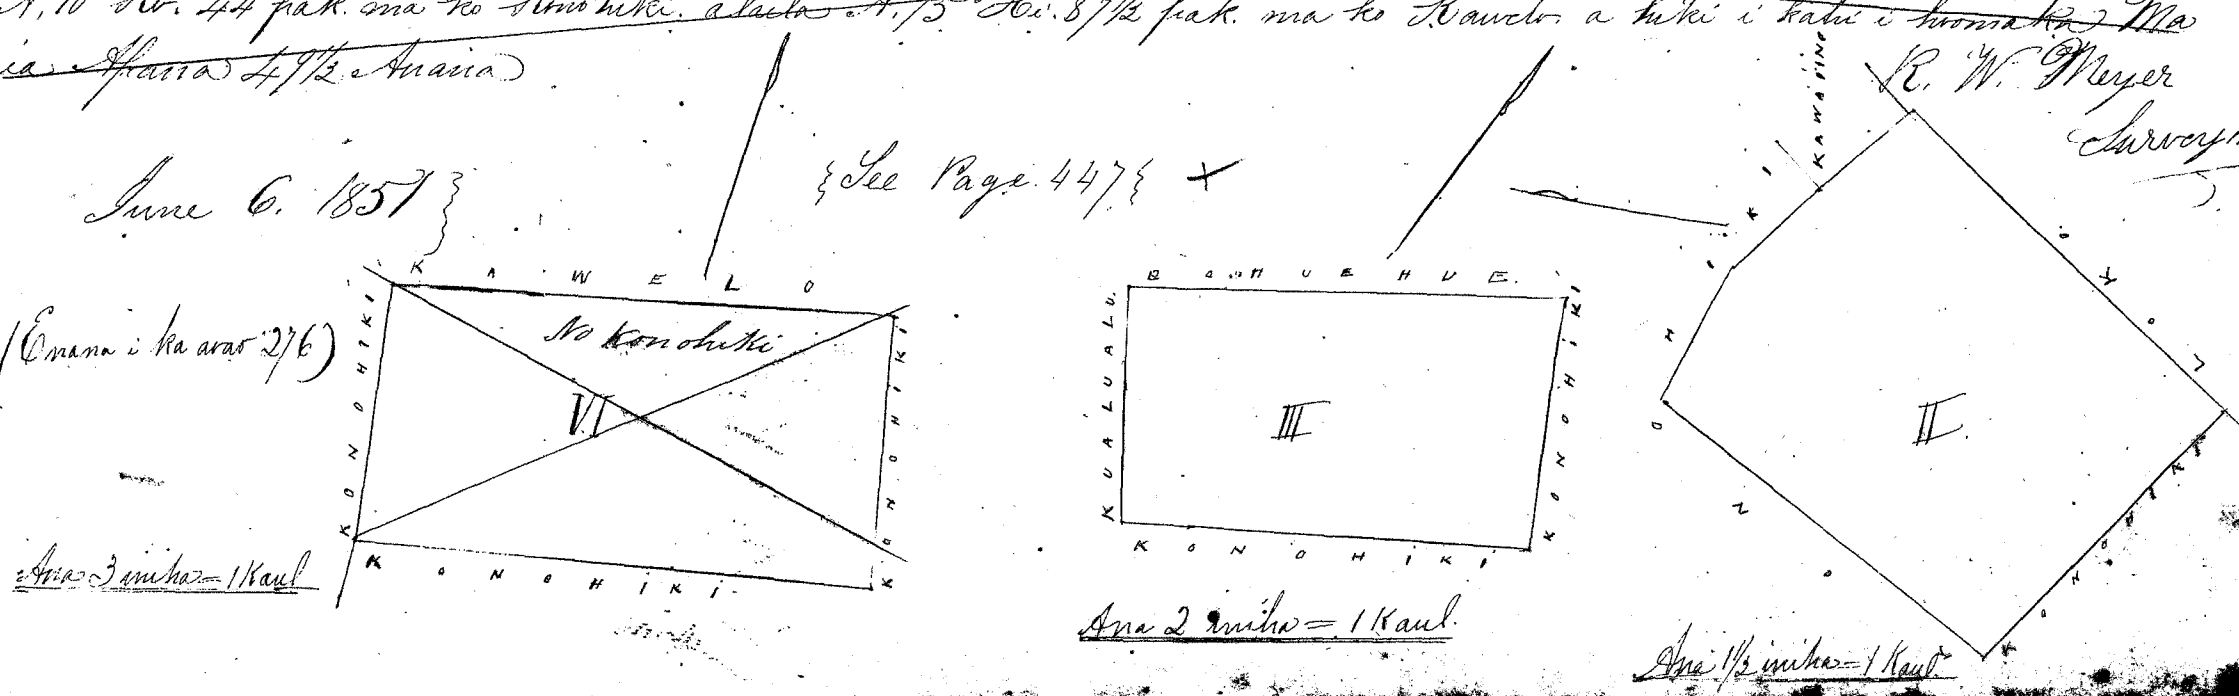 A, 10 Hi. 44 pak. ma ko Konohiki. alaila A, 75 Hi. 87 1/2 pak. ma ko Kawelo. a hiki i kahi i hoomaka Ma
ia Apana 49 1/2 Anana
R. W. Meyer
Survey
June 6. 1851
{See Page. 447} +
KAWELO
No Konohiki
VI
KONOHIKI
KONOHIKI
KONOHIKI
(Enana i ka aoao 276)
Ana 3 iniha = 1 Kaul
HUEHUE.
KUALUALU.
III
KONOHIKI
KONOHIKI
Ana 2 iniha = 1 Kaul.
II.
KONOHIKI
Ana 1 1/2 iniha = 1 Kaul.